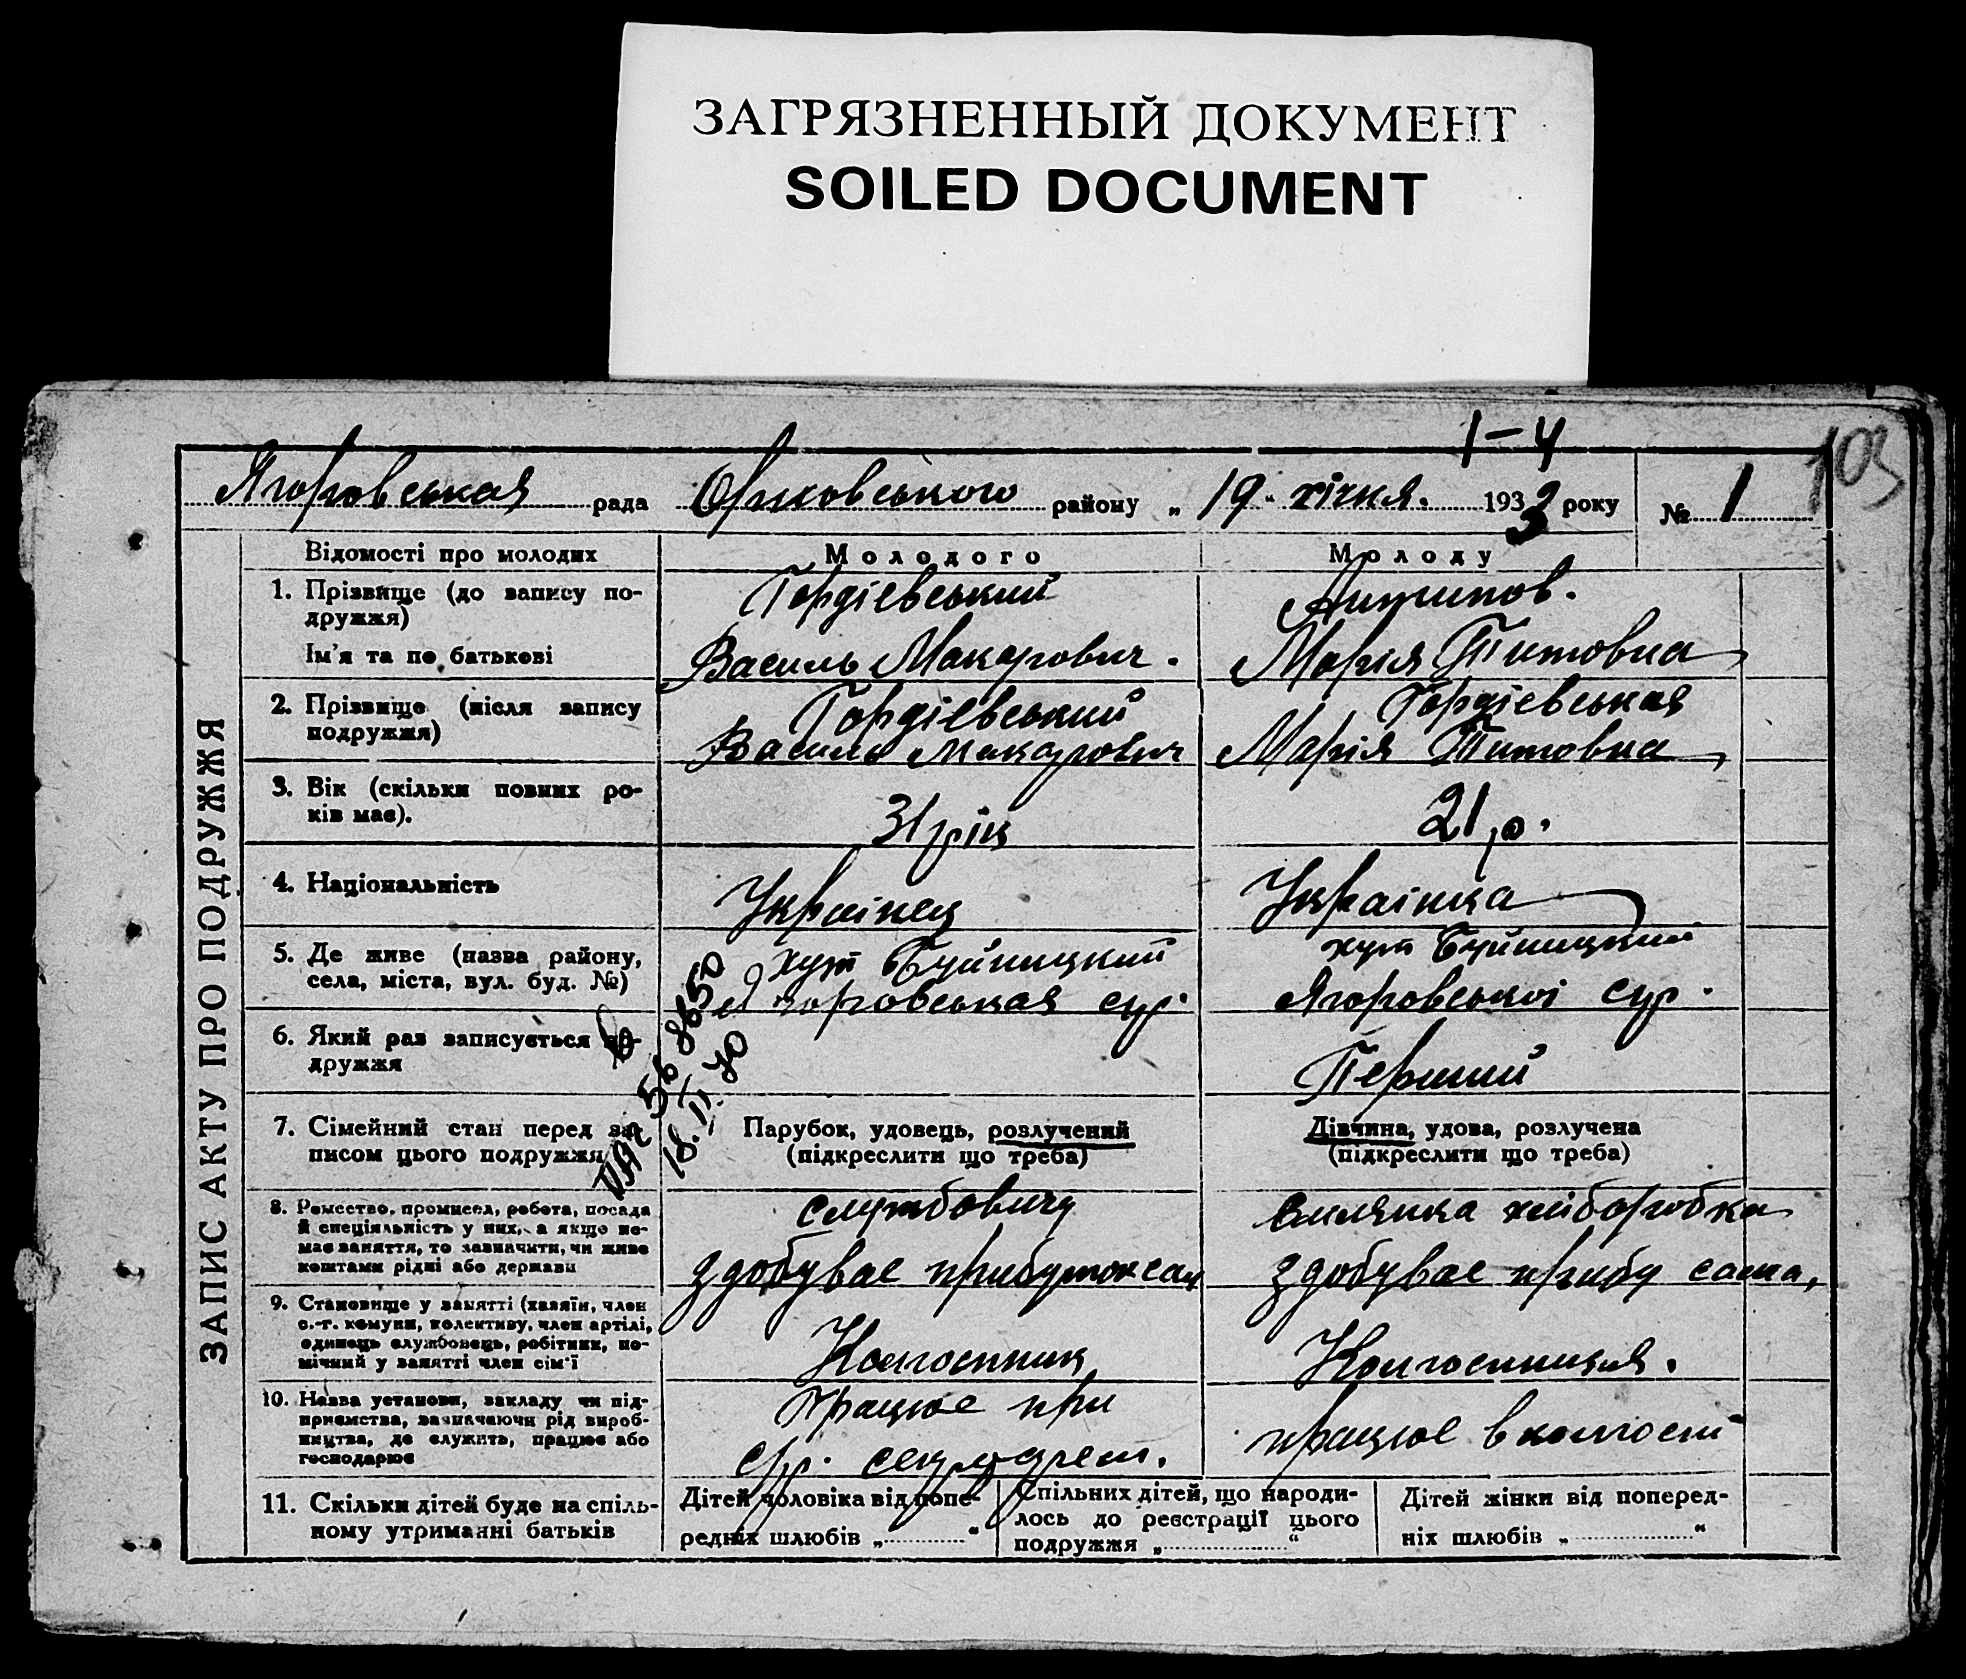 ЗАГРЯЗНЕННЫЙ ДОКУМЕНТ
SOILED DOCUMENT
1–4
103
Ягоровськая рада района „19“ січня. 1933 року № 1
ЗАПИС АКТУ ПРО ПОДРУЖЖЯ
Відомості про молодих Молодого Молоду
1. Прізвище (до запису по-
дружжя) Гордієвський Антипов.
Ім'я та по батькові Василь Макарович. Марія Титовна
2. Прізвище (після запису Гордієвський Гордієвськая
подружжя) Василь Макарович Марія Титовна
3. Вік (скільки повних ро-
ків має). 31 рік 21 р.
4. Національність Українец Українка
5. Де живе (назва району, хут Буйницкий хут Буйницкий
села, міста, вул. буд. №) Ягоровськая с/р. Ягоровської с/р.
6. Який раз записується по-
дружжя Перший
18.II.70
7. Сімейний стан перед за- Парубок, удовець, розлучений Дівчина, удова, розлучена
писом цього подружжя (підкреслити що треба) (підкреслити що треба)
8. Ремество, промисел, робота, посада
й спеціяльність у них, а якщо не- хліборобка
має заняття, то зазначити, чи живе
коштами рідні або держави здобуває прибуток сам здобуває прибу сама,
9. Становище у занятті (хазяїн, член
с.-г. комуни, колективу, член артілі,
одинець службовець, робітник, по-
мічний у занятті член сім'ї Колгоспник Колгоспниця.
10. Назва установи, закладу чи під- Працює при
приємства, зазначаючи рід вироб- працює в колгоспі
ництва, де служить, працює або
господарює с/р.
11. Скільки дітей буде на спіль- Дітей чоловіка від попе- Спільних дітей, що народи- Дітей жінки від поперед-
ному утриманні батьків редніх шлюбів „ “ лось до реєстрації цього ніх шлюбів „ “
подружжя „ “